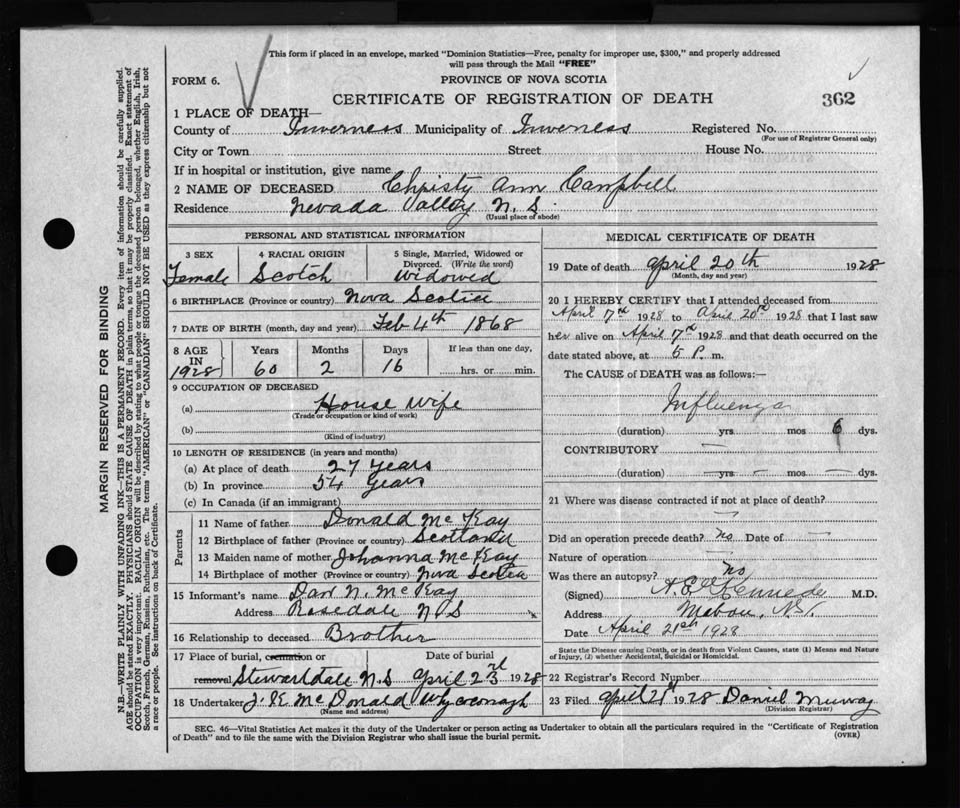 This form if placed in an envelope, marked "Dominion Statistics—Free, penalty for improper use, $300," and properly addressed
will pass through the Mail "FREE"
FORM 6.
PROVINCE OF NOVA SCOTIA
CERTIFICATE OF REGISTRATION OF DEATH
362
1 PLACE OF DEATH—
County of Inverness Municipality of Inverness Registered No.
(For use of Registrar General only)
City or Town Street House No.
If in hospital or institution, give name
2 NAME OF DECEASED Christy Ann Campbell
Residence Nevada Valley N.S.
(Usual place of abode)
PERSONAL AND STATISTICAL INFORMATION
3 SEX 4 RACIAL ORIGIN 5 Single, Married, Widowed or
Divorced. (Write the word)
Female Scotch Widowed
6 BIRTHPLACE (Province or country) Nova Scotia
7 DATE OF BIRTH (month, day and year) Feb 4th 1868
8 AGE IN 1928 Years 60 Months 2 Days 16 If less than one day,
hrs. or min.
9 OCCUPATION OF DECEASED
(a) House Wife
(Trade or occupation or kind of work)
(b)
(Kind of industry)
10 LENGTH OF RESIDENCE (in years and months)
(a) At place of death 27 Years
(b) In province 54 Years
(c) In Canada (if an immigrant)
Parents
11 Name of father Donald Mc Kay
12 Birthplace of father (Province or country) Scotland
13 Maiden name of mother Johanna Mc Kay
14 Birthplace of mother (Province or country) Nova Scotia
15 Informant's name Dan N. Mc Kay
Address Rosedale N S
16 Relationship to deceased Brother
17 Place of burial, cremation or removal Date of burial
Stewartdale N.S April 23rd 1928
18 Undertaker J. E Mc Donald Whycocomagh
(Name and address)
MEDICAL CERTIFICATE OF DEATH
19 Date of death April 20th 1928
(Month, day and year)
20 I HEREBY CERTIFY that I attended deceased from
April 17th 1928 to April 20th 1928 that I last saw
her alive on April 17th 1928 and that death occurred on the
date stated above, at 5 P. m.
The CAUSE of DEATH was as follows:—
Influenza
(duration) yrs. mos 6 dys.
CONTRIBUTORY —
(duration) — yrs — mos. — dys.
21 Where was disease contracted if not at place of death?
—
Did an operation precede death? no Date of —
Nature of operation —
Was there an autopsy? no
(Signed) Kennedy M.D.
Address Mabou, N.S.
Date April 21st 1928
State the Disease causing Death, or in death from Violent Causes, state (1) Means and Nature
of Injury, (2) whether Accidental, Suicidal or Homicidal.
22 Registrar's Record Number
23 Filed April 21 1928 Daniel Murray
(Division Registrar)
SEC. 46—Vital Statistics Act makes it the duty of the Undertaker or person acting as Undertaker to obtain all the particulars required in the "Certificate of Registration
of Death" and to file the same with the Division Registrar who shall issue the burial permit.
(OVER)
MARGIN RESERVED FOR BINDING
N.B.—WRITE PLAINLY WITH UNFADING INK—THIS IS A PERMANENT RECORD. Every item of information should be carefully supplied.
AGE should be stated EXACTLY. PHYSICIANS should STATE CAUSE OF DEATH in plain terms, so that it may be properly classified. Exact statement of
OCCUPATION is very important. RACIAL ORIGIN will be described by stating to what people or tongue the deceased person belonged, whether English, Irish,
Scotch, French, German, Russian, Ruthenian, etc. The terms "AMERICAN" or "CANADIAN" SHOULD NOT BE USED as they express citizenship but not
a race or people. See instructions on back of Certificate.